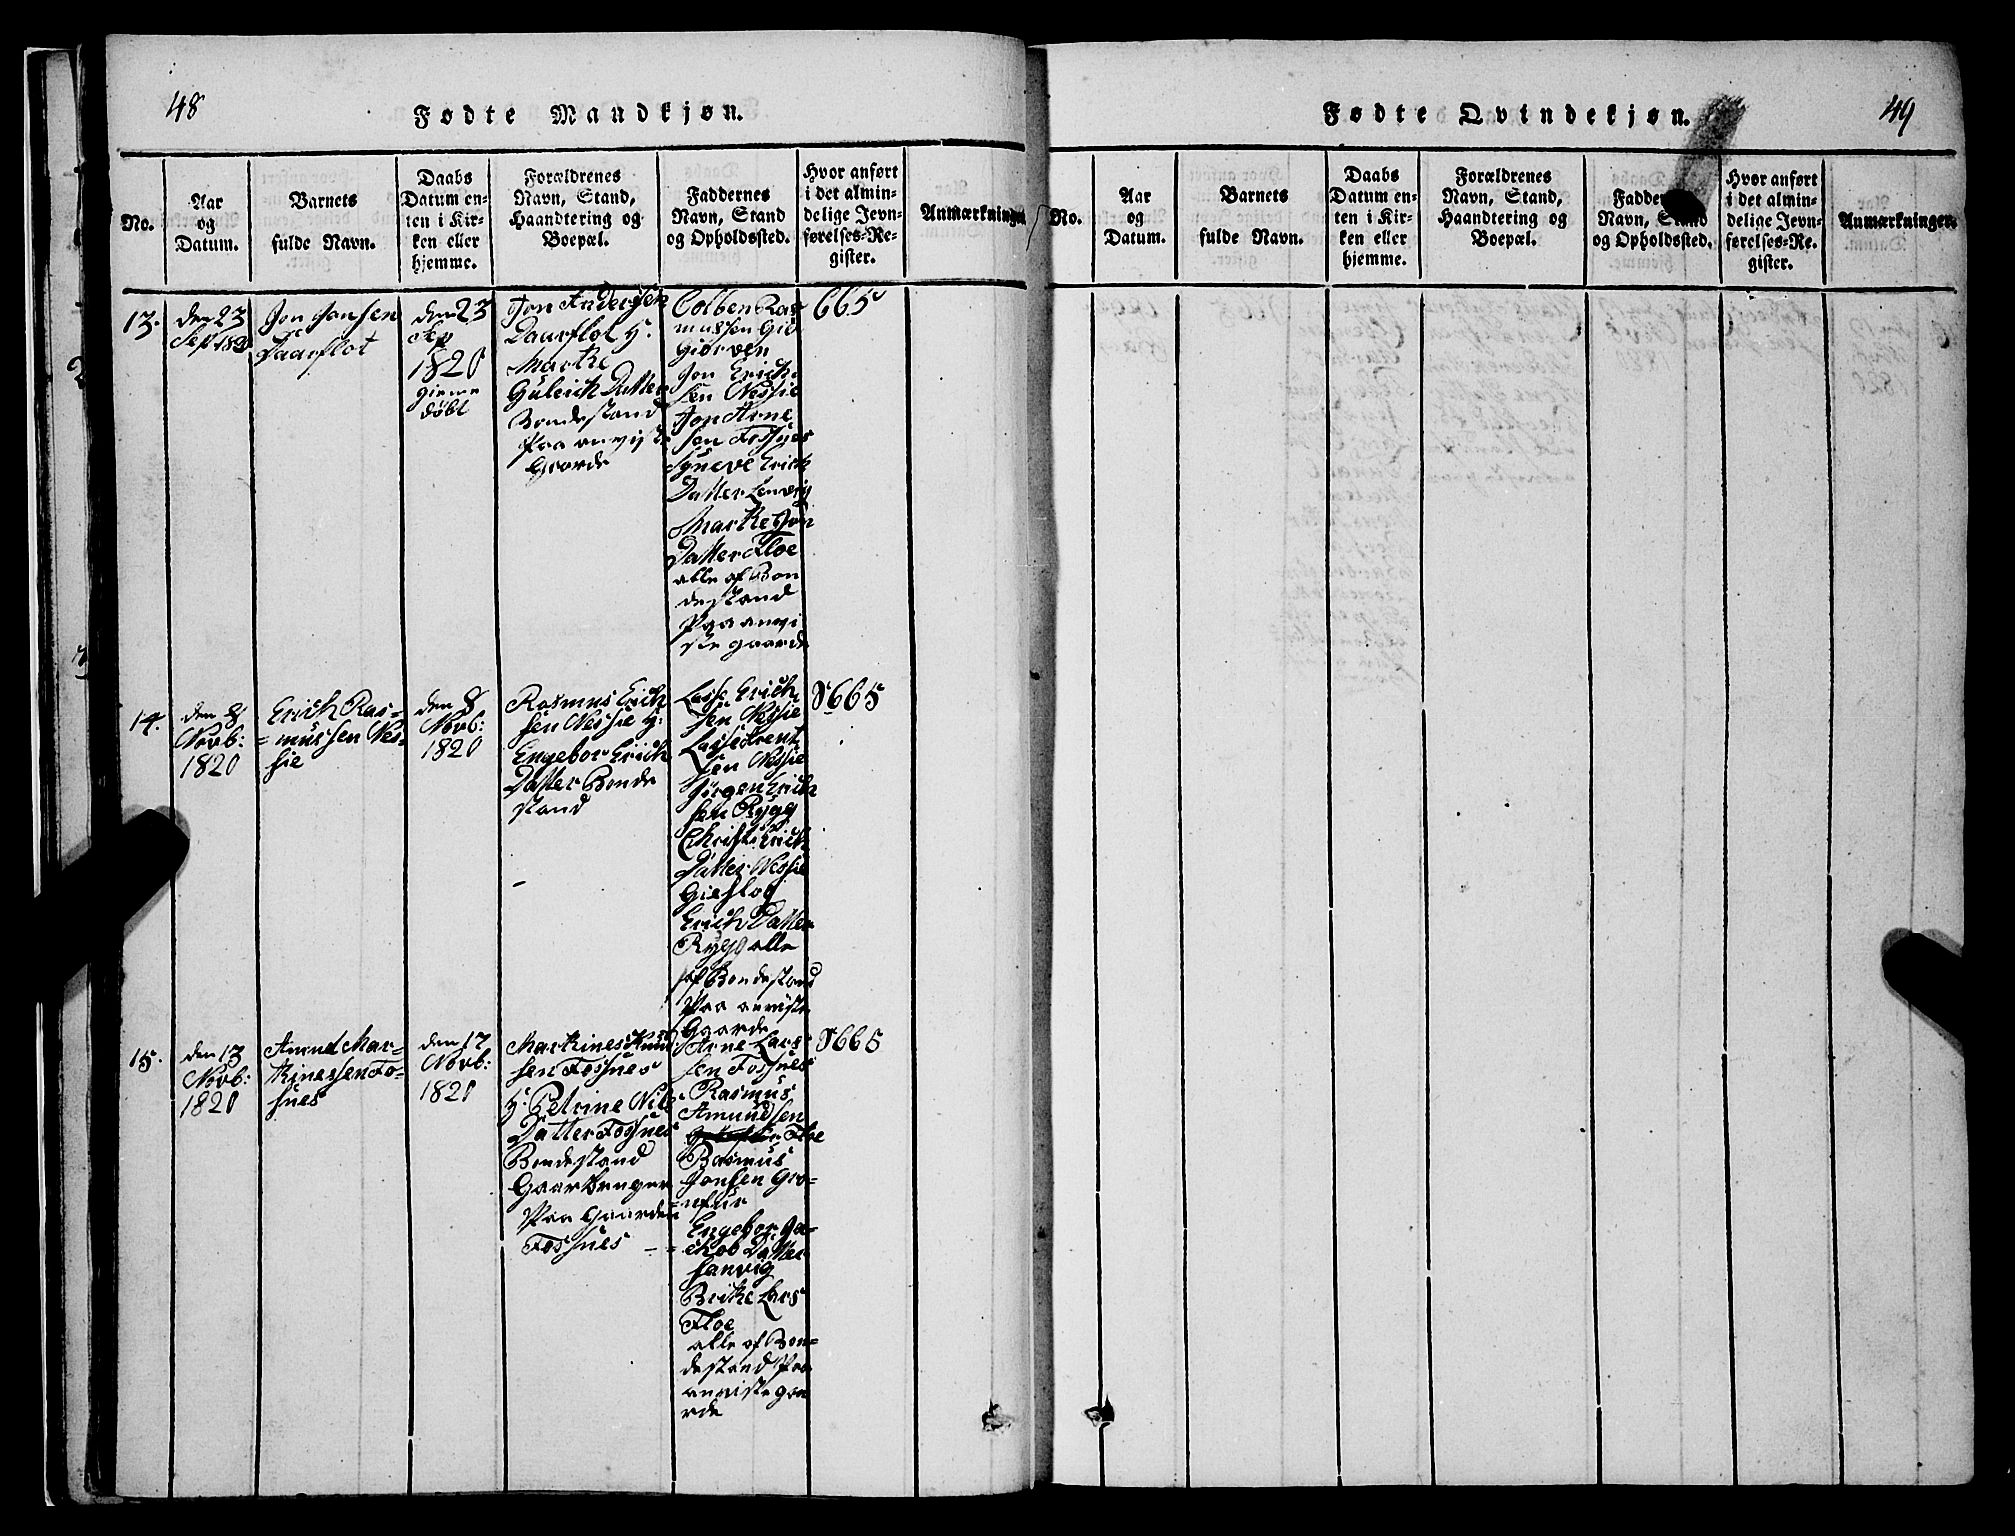 48
Fødte Mandkjøn.
No.
Aar
og
Datum.
Barnets
fulde Navn.
Daabs
Datum en-
ten i Kir-
ken eller
hjemme.
Forældrenes
Navn, Stand,
Haandtering og
Boepæl.
Faddernes
Navn, Stand
og Opholdssted.
Hvor anført
i det almin-
delige Jevn-
førelses-Re-
gister.
Anmærkninger
13.
den 23
Sep 1820
Jon Jonsen
Daarflot
den 23
Sep
1820
gieme
døbt
Jon Andersen
Daarflot h:
Marthe
Gulerich Datter
Bondestand
Paa anviste
Gaarde
Colben Ras
mussen Gie
Giørven
Jon Erich
sen Nessie
Jon Arne
sen Fosnes
Syneve Erich
Datter Lenvig
Marthe Jon
Datter Floe
alle af Bon
destand
Paa anvi
ste gaarde
665
14.
den 8
Novb:
1820
Erich Ras=
=mussen Nes=
sie
den 8
Novb:
1820
Rasmus Erich
sen Nessie h:
Engebor Erich
Datter Bonde
stand
Lasse Erich
sen Nessie
Lasse
sen Nessie
Jørgen Erich
sen Rygg
Christi Erich
Datter Nessie
Gieslog
Erich Datter
Rygg alle
af Bondestand
Paa anviste
Gaarde
S665
15.
den 13
Novb:
1820
Anned Mar=
tinessen Fo=
snes
den 17
Novb:
1820
Martines Knud
sen Fossnes
h: Petrine Nils
Datter Fossnes
Bondestand
Gaarbruger
Paa Gaarden
Fossnes
Arne Lars
sen Fossnes
Rasmus
Amundsen
Floe
Rasmus
Jonsen Gro=
=nfur
Engebor Ja=
=chob Datter
sanvig
Brithe Lars
Floe
alle af Bon=
destand Paa
anviste gaa
rde
S665
49
Fødte Qvindekjøn.
No.
Aar
og
Datum.
Barnets
fulde Navn.
Daabs
Datum en-
ten i Kir-
ken eller
hjemme.
Forældrenes
Navn, Stand,
Haandtering og
Boepæl.
Faddernes
Navn, Stand
og Opholdssted.
Hvor anført
i det almin-
delige Jevn-
førelses-Re-
gister.
Anmærkninger.